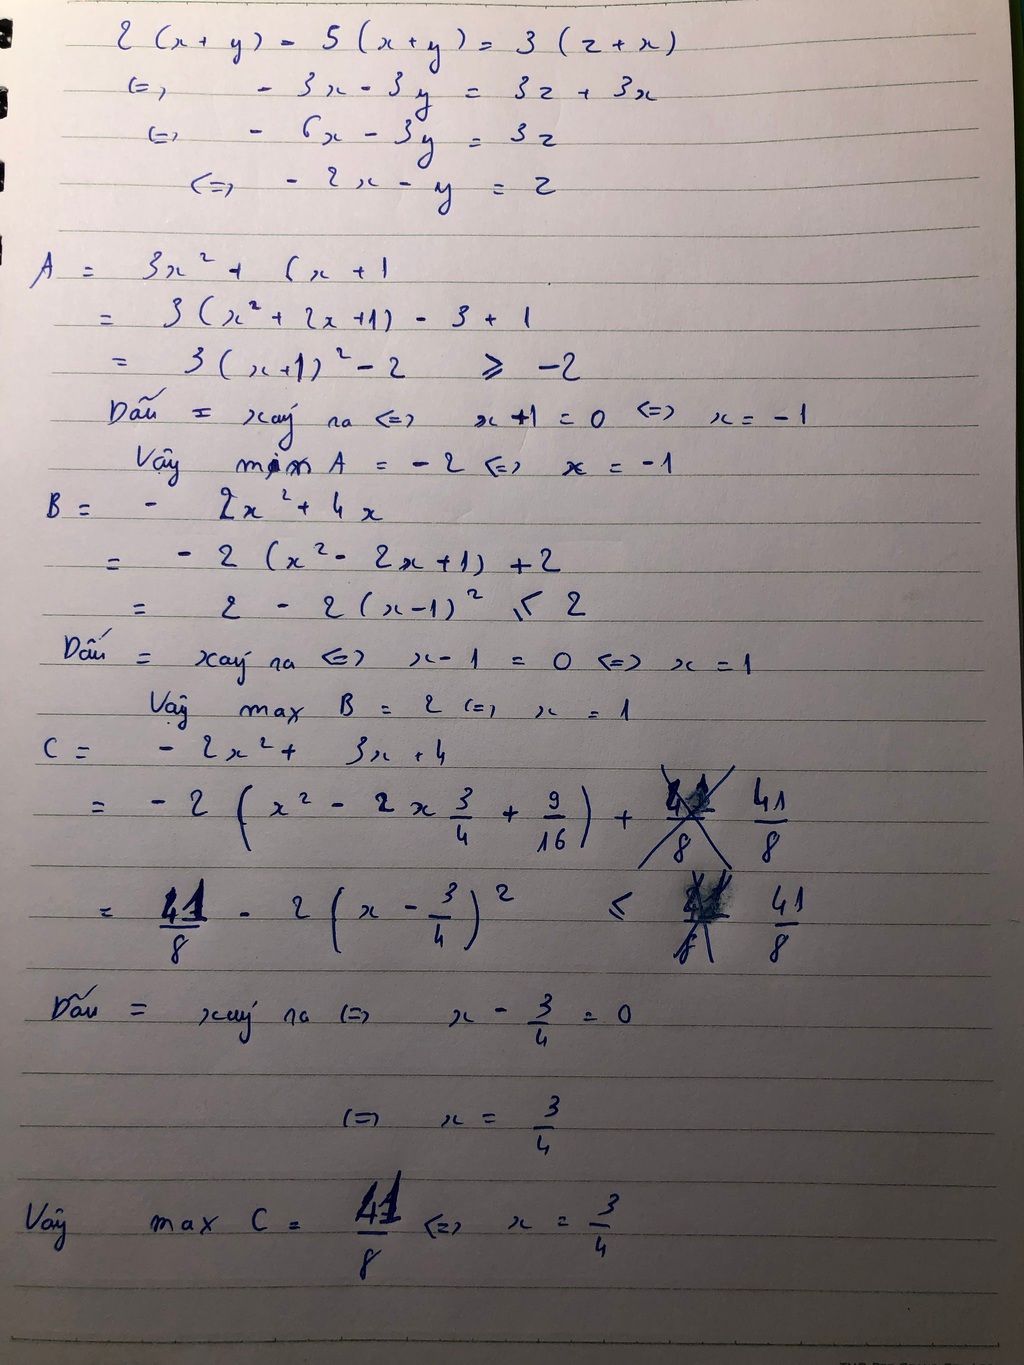 2 (x + y) - 5 (x + y) = 3 (z + x)
<=> - 3x - 3y = 3z + 3x
<=> - 6x - 3y = 3z
<=> - 2x - y = z
A = 3x² + 6x + 1
= 3 (x² + 2x + 1) - 3 + 1
= 3 (x + 1)² - 2 ≥ -2
Dấu = xảy ra <=> x + 1 = 0 <=> x = -1
Vậy min A = -2 <=> x = -1
B = - 2x² + 4x
= - 2 (x² - 2x + 1) + 2
= 2 - 2 (x - 1)² ≤ 2
Dấu = xảy ra <=> x - 1 = 0 <=> x = 1
Vậy max B = 2 <=> x = 1
C = - 2x² + 3x + 4
= - 2 (x² - 2x 3/4 + 9/16) + 41/8
= 41/8 - 2 (x - 3/4)² ≤ 41/8
Dấu = xảy ra <=> x - 3/4 = 0
<=> x = 3/4
Vậy max C = 41/8 <=> x = 3/4